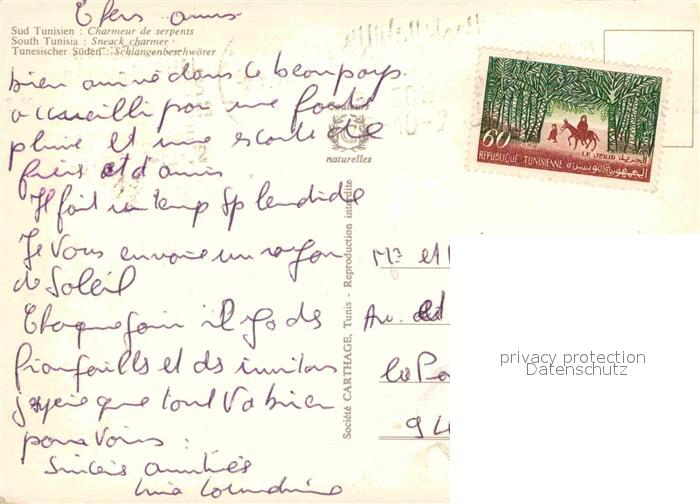 Chers amis
Sud Tunisien : Charmeur de serpents
South Tunisia : Sneack charmer
Tunesischer Süden : Schlangenbeschwörer
bien arrivé dans ce beau pays
accueilli par une forte
pluie et une escorte de
et d'amis
Il fait un temp splendide
Je vous envoie un rayon
de Soleil
Chaque jour il y a des
et des invitations
j'espère que tout va bien
pour vous.
Sincères amitiés
couleurs
naturelles
Société CARTHAGE, Tunis - Reproduction interdite
60
LE JERID الجريد
REPUBLIQUE TUNISIENNE الجمهورية التونسية
Mr et
Av. de
le Pa
94
privacy protection
Datenschutz